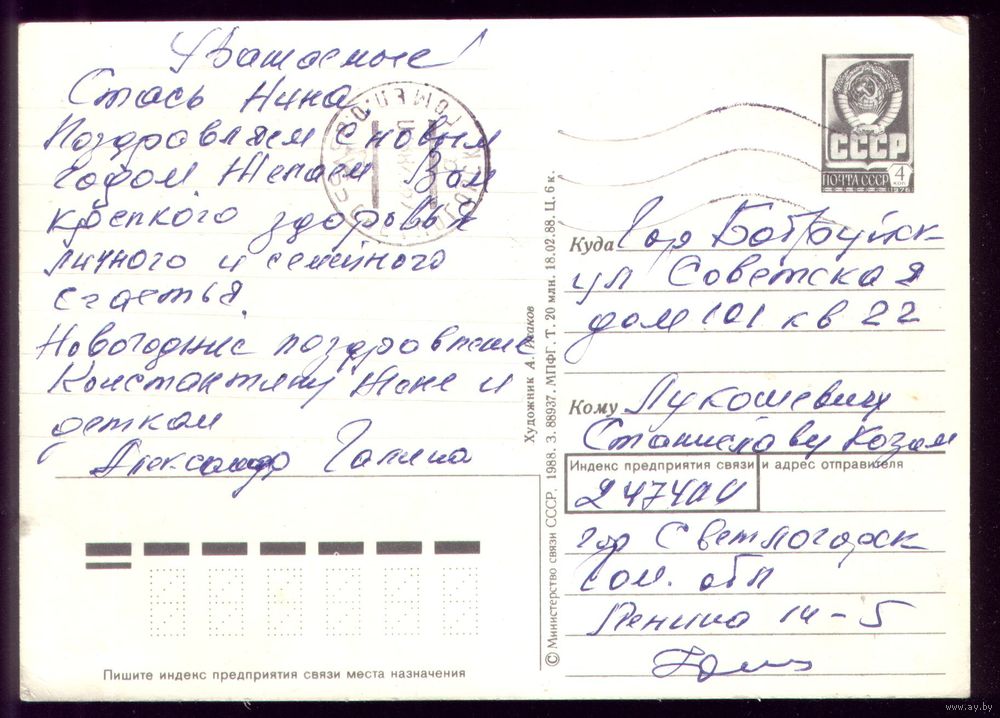 Уважаемые!
Стась Нина
Поздравляем с новым
годом. Желаем Вам
крепкого здоровья
личного и семейного
счастья.
Новогодние поздравления
Константину Жене и
деткам
Александр Галина
СССР
ПОЧТА СССР
4
КОП
1976
Куда Гор Бобруйск
ул Советская
дом 101 кв 22
Кому Лукошевичу
Станиславу
Индекс предприятия связи и адрес отправителя
247400
гор Светлогорск
Гом. обл
Ленина 14-5
Художник А.
© Министерство связи СССР. 1988. З. 88937. МПФГ. Т. 20 млн. 18.02.88. Ц. 6 к.
Пишите индекс предприятия связи места назначения
www.ay.by